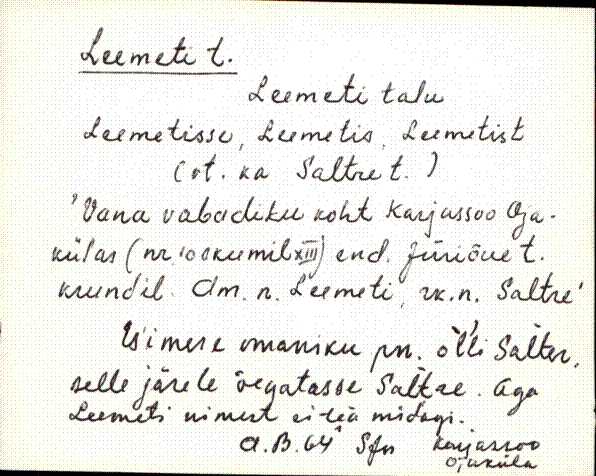 Leemeti t.
Leemeti talu
Leemetisse, Leemetis, Leemetist
(vt. ka Saltre t.)
'Vana vabadiku koht Karjassoo Oja-
külas (nr. kumil XIII) end. Jüriõue t.
krundil. Am. n. Leemeti, rk. n. Saltre'
Esimese omaniku pn. Olli Salter,
selle järele õegatasse Saltre. Aga
Leemeti nimest ei tea midagi.
A.B. 64 Sfn Karjassoo
Ojaküla